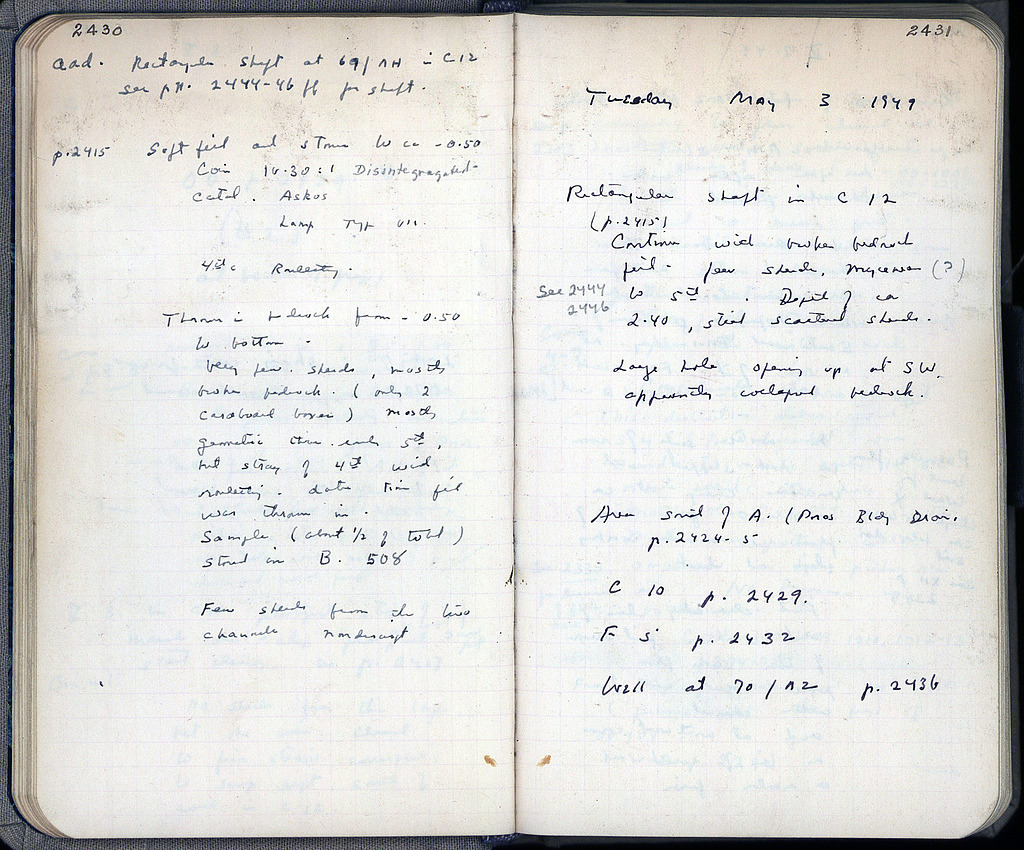 2430
Add. Rectangular shaft at 69/ΛΗ in C 12
see pp. 2444-46 ff for shaft.
p.2415 Soft fill and stones to ca -0.50
Coin 14.30:1 Disintegrated
Catal. Askos
Lamp Type VII.
4th c Rouletting.
Thrown in bedrock from -0.50
to bottom.
Very few sherds, mostly
broken bedrock. (only 2
cardboard boxes) mostly
geometric thru early 5th,
but stray of 4th with
rouletting. date time fill
was thrown in.
Sample (about 1/2 of total)
stored in B. 508
Few sherds from the two
channels nondescript
2431
Tuesday May 3 1949
Rectangular shaft in C 12
(p.2415)
Continue with broken bedrock
fill - few sherds, Mycenaean (?)
See 2444
2446
to 5th. Depth of ca
2.40, still scattered sherds.
Large hole opening up at SW,
apparently collapsed bedrock.
Area South of A. (Poros Bldg Drain.
p. 2424-5
C 10 p. 2429.
F 5 p. 2432
Well at 70/ΛΖ p. 2436